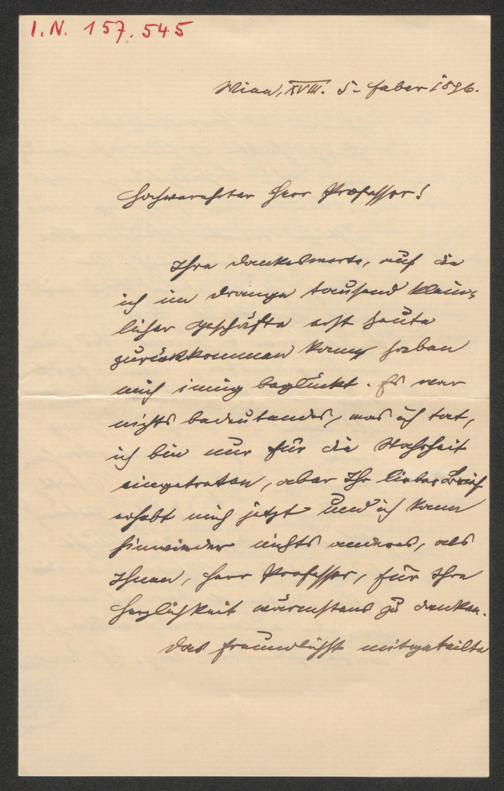 I.N. 157.545
Wien, XVIII. 5. Feber 1896.
Hochverehrter Herr Professor!
Ihre Dankesworte, auf die
ich im Drange tausend klein-
licher Geschäfte erst heute
zurückkommen kann, haben
mich innig beglückt. Es war
nichts bedeutendes, was ich tat,
ich bin nur für die Wahrheit
eingetreten, aber Ihr lieber Brief
erhebt mich jetzt und ich kann
hinwieder nichts anderes, als
Ihnen, Herr Professor, für Ihre
Herzlichkeit wärmstens zu danken.
Das freundlichst mitgeteilte